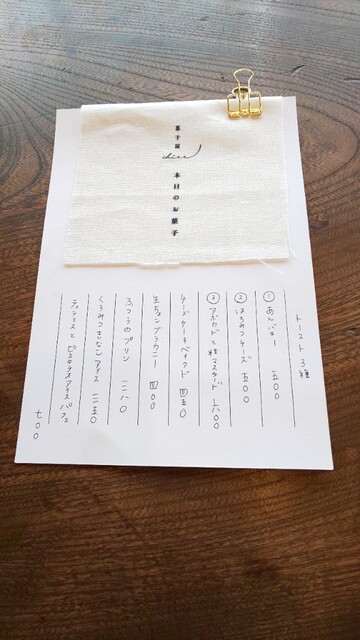 菓子屋
chiee
本日のお菓子
トースト3種
①あんバター 五〇〇
②はちみつチーズ 五〇〇
③アボカドと粒マスタード 六〇〇
チーズケーキベイクド 四五〇
生チョコブラウニー 四〇〇
ふつうのプリン 三八〇
くろみつきなこアイス 三五〇
ティラミスとピスタチオアイスパフェ 七〇〇